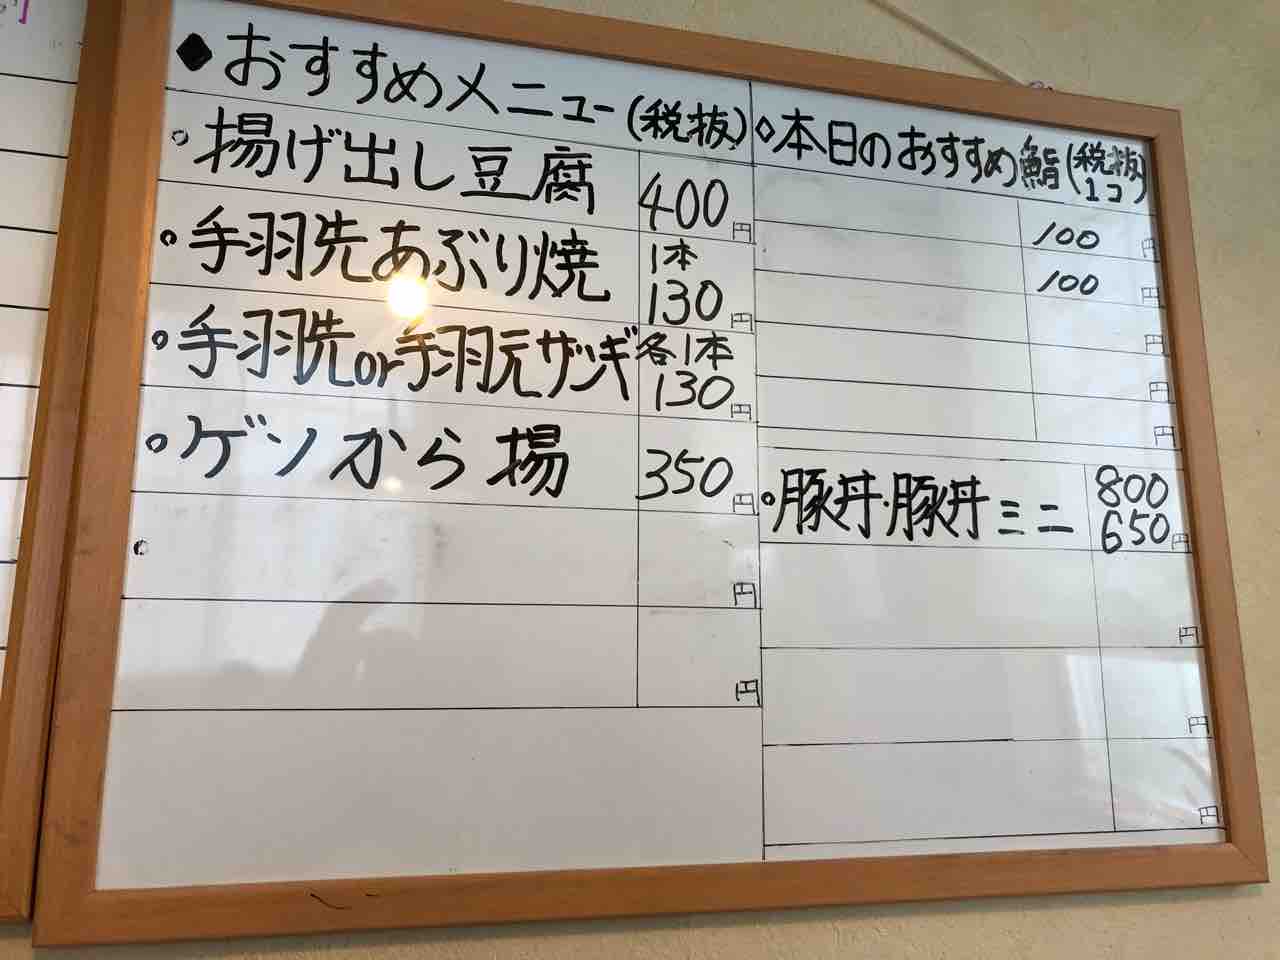 ◆おすすめメニュー(税抜)
○揚げ出し豆腐 400円
○手羽先あぶり焼 1本 130円
○手羽先or手羽元ザンギ 各1本 130円
○ゲソから揚 350円
○ 円
円
◇本日のおすすめ鮨(税抜 1コ)
100円
100円
円
円
円
○豚丼・豚丼ミニ 800 650円
円
円
円